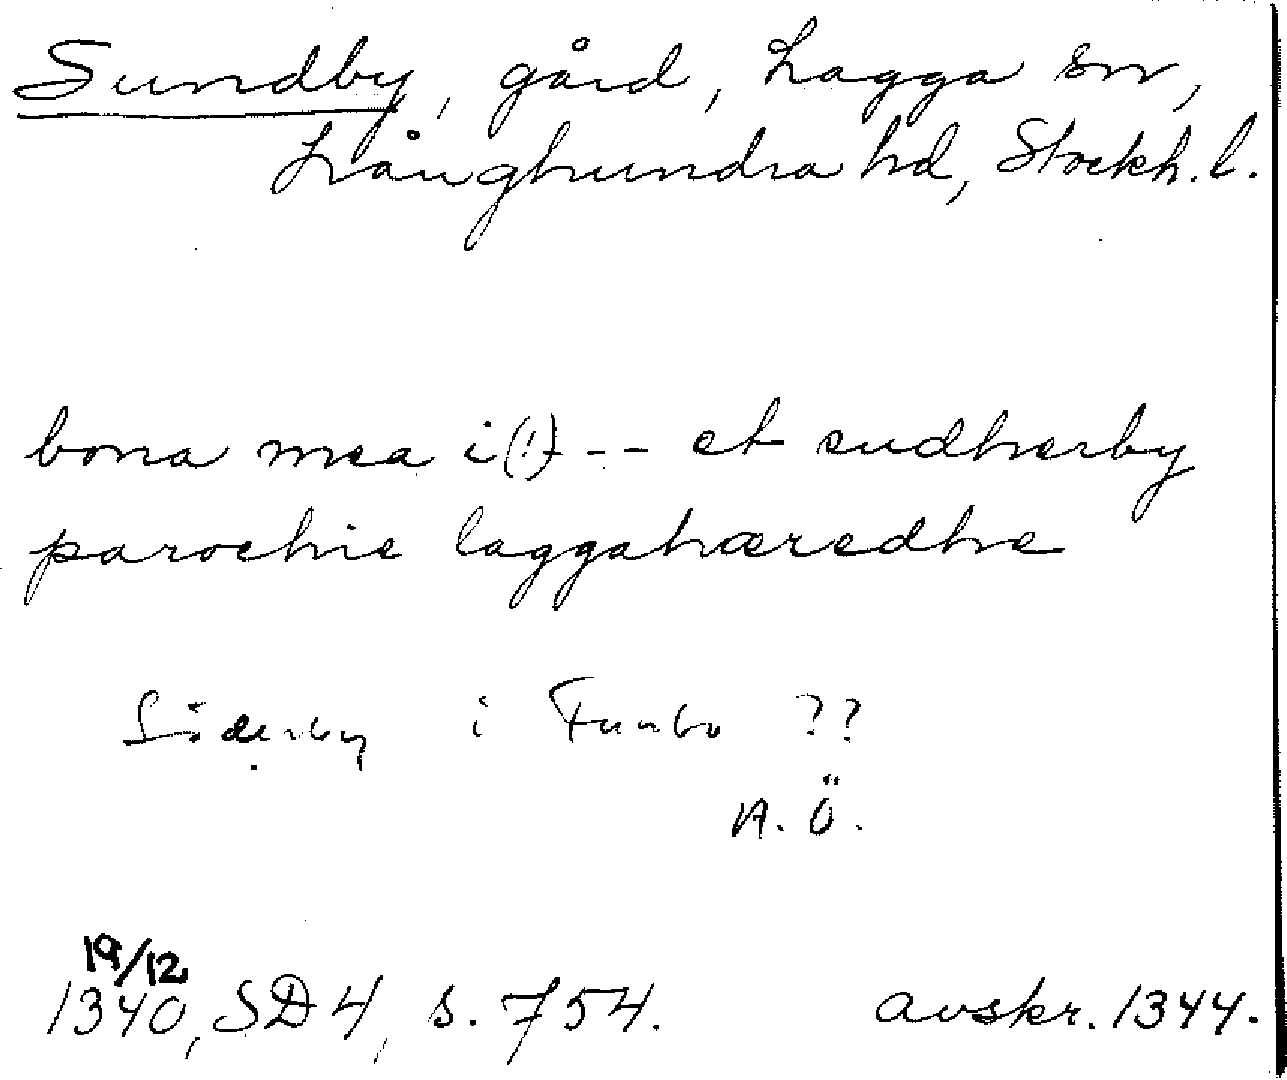 Sundby, gård, Lagga sn,
Långhundra hd, Stockh. l.
bona mea i(!) -- et sudherby
parochie laggahæredhe
Söderby i Funbo ??
A. Ö.
19/12
1340, SD 4, s. 754. avskr. 1344.